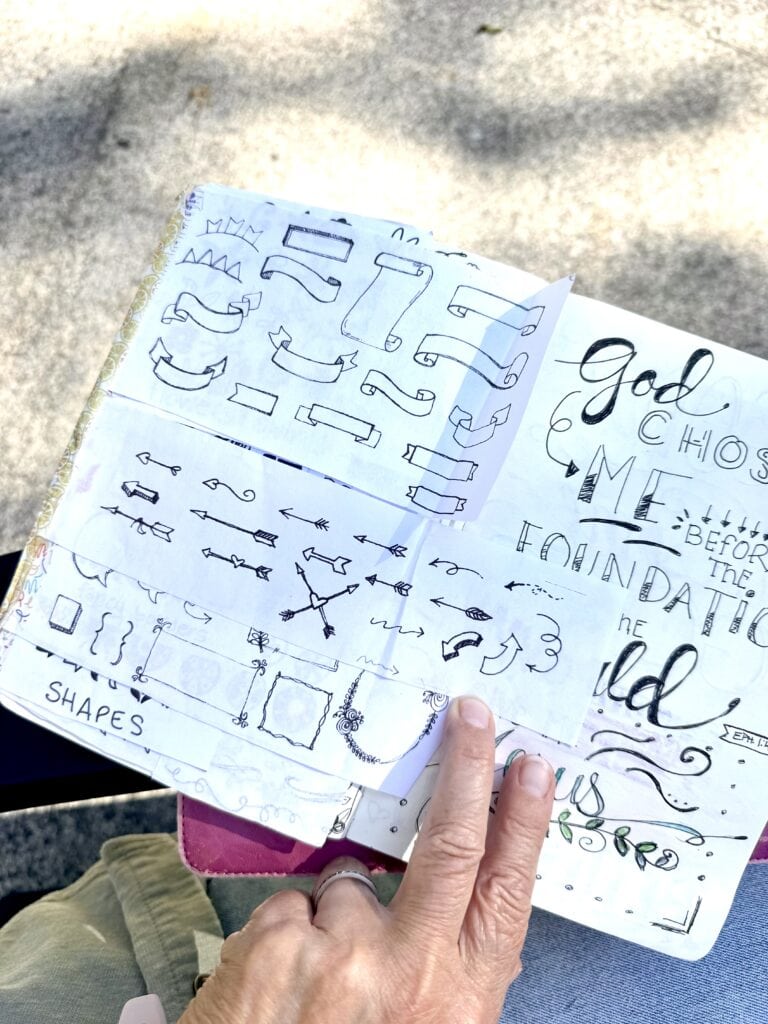 SHAPES
God
CHOS
ME
BEFOR
THE
FOUNDATIO
HE
ld
EPH 1: